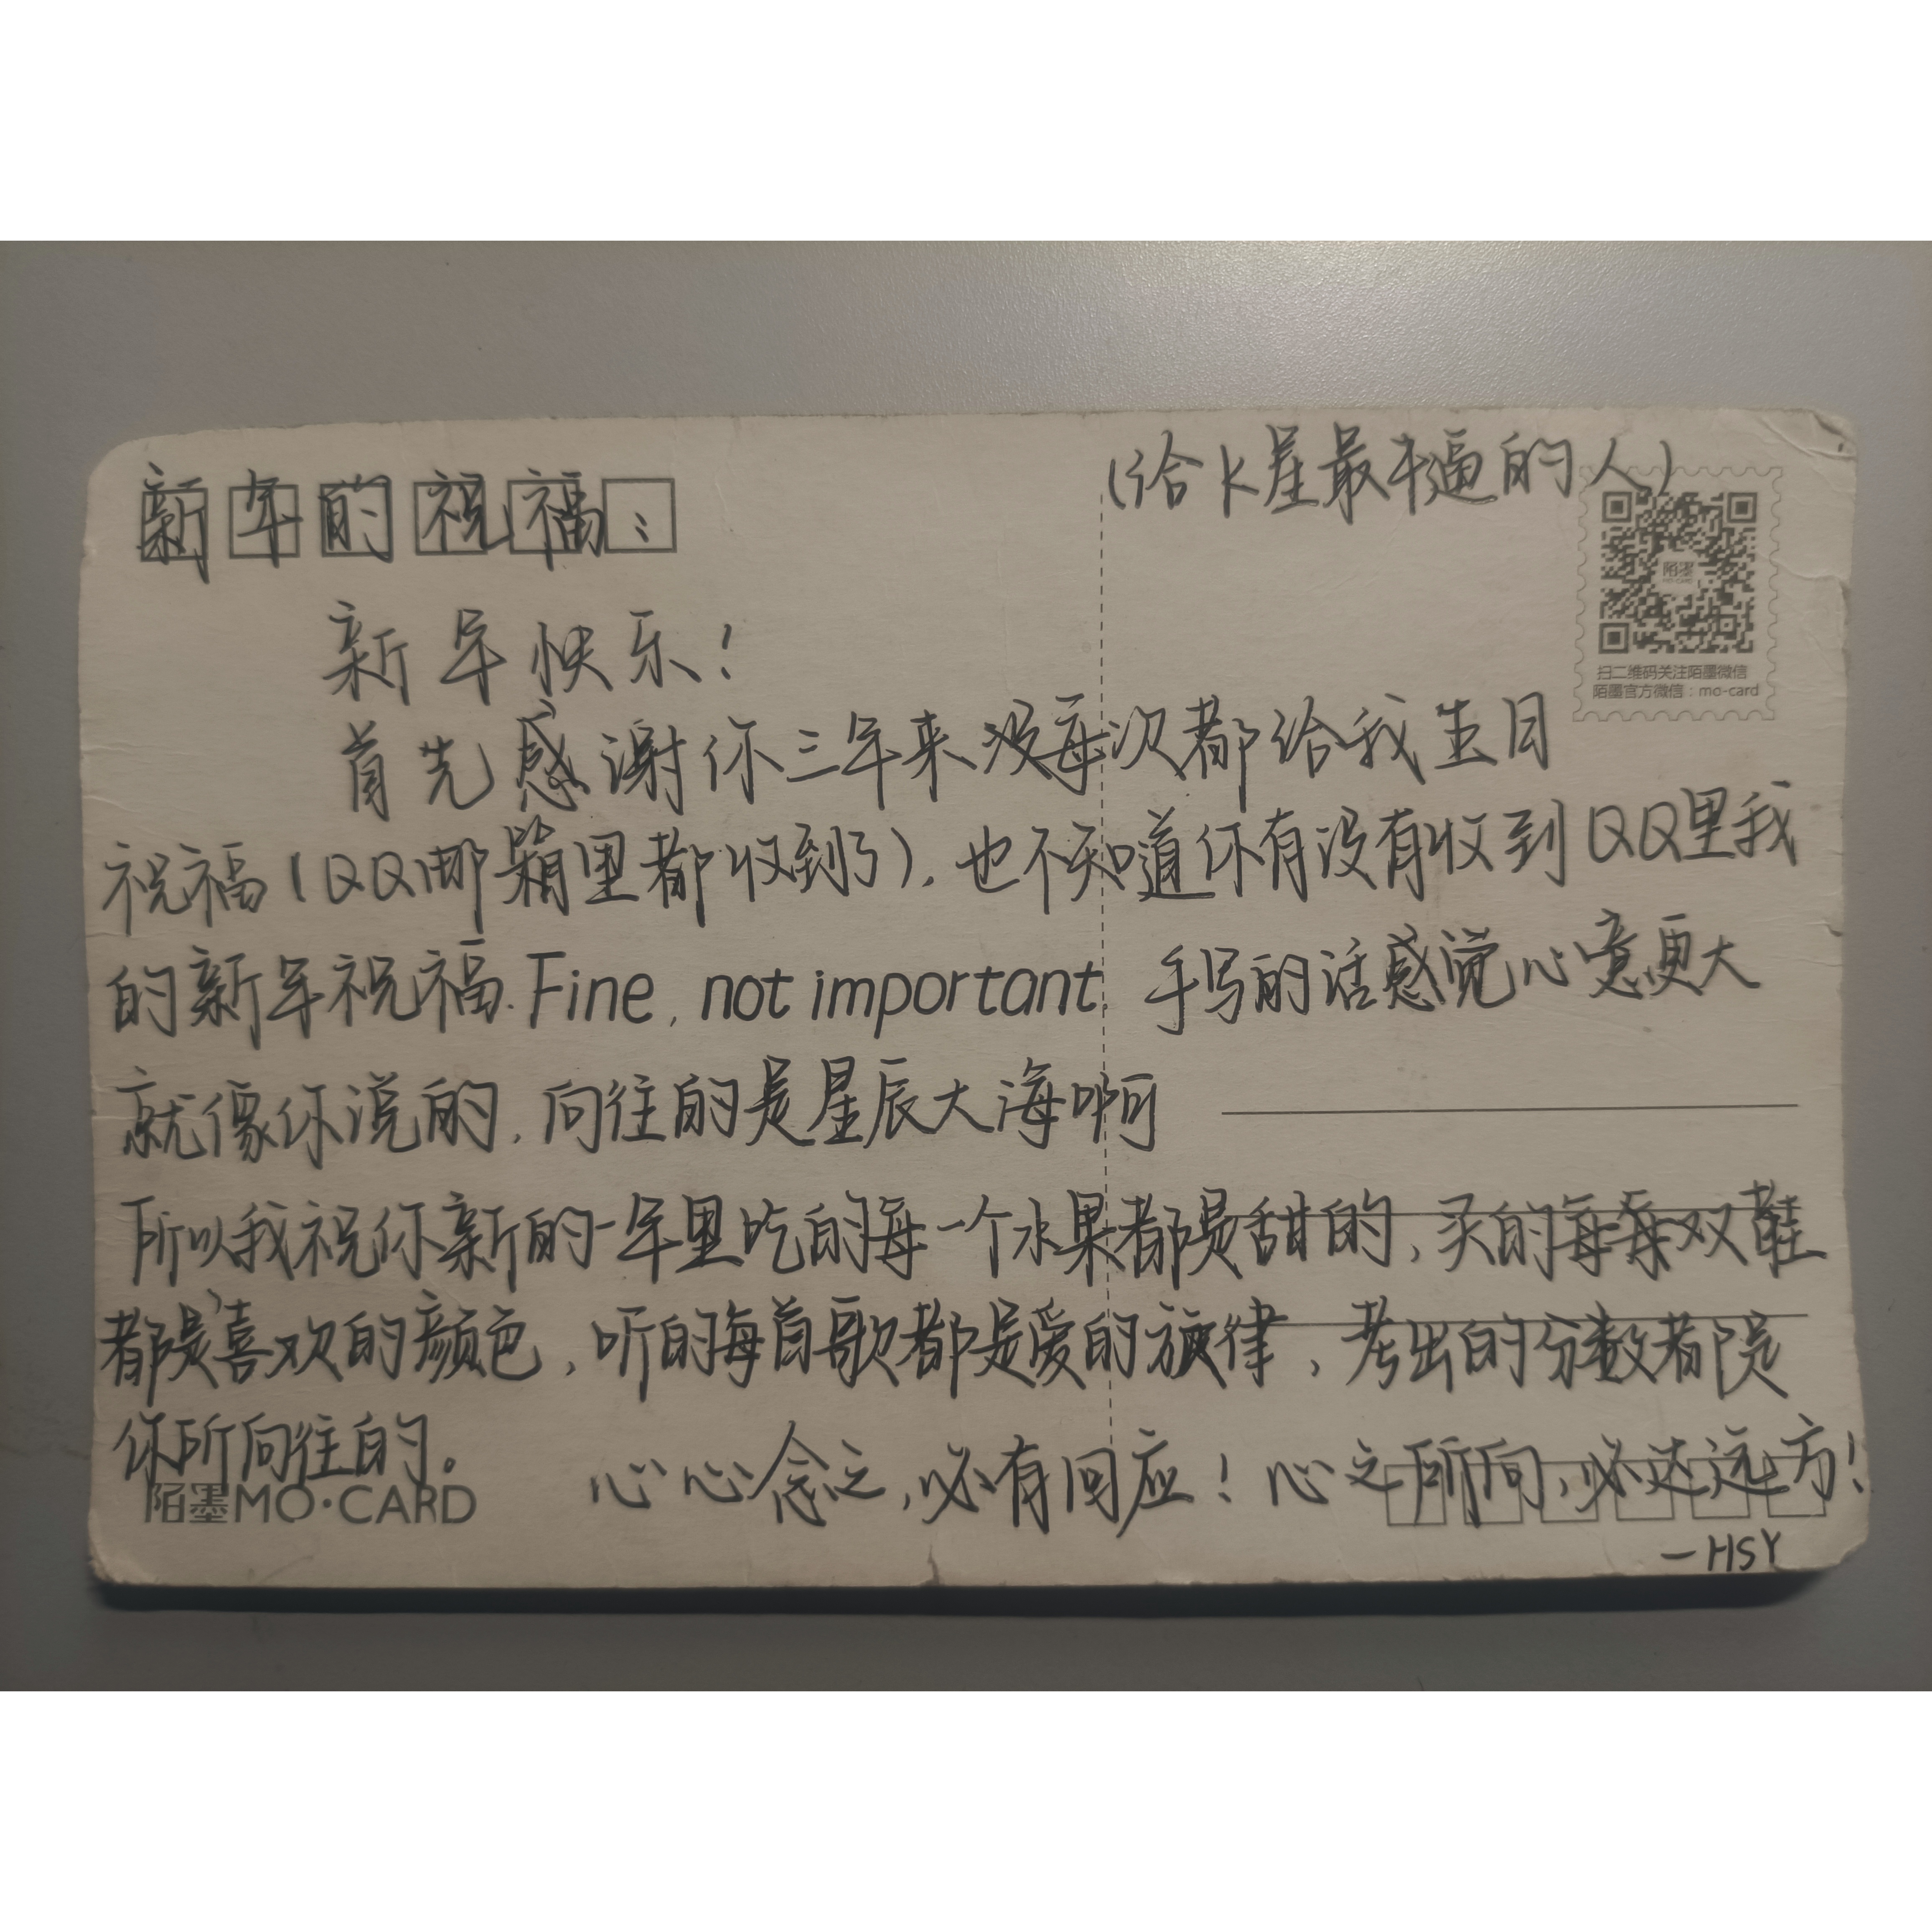 (给K星最牛逼的人)
新年的祝福:
陌墨
MO CARD
扫二维码关注陌墨微信
陌墨官方微信:mo-card
新年快乐!
首先感谢你三年来没每次都给我生日
祝福(QQ邮箱里都收到了),也不知道你有没有收到QQ里我
的新年祝福.Fine, not important. 手写的话感觉心意更大
就像你说的,向往的是星辰大海啊
所以我祝你新的一年里吃的每一个水果都是甜的,买的每每双鞋
都是喜欢的颜色,听的每首歌都是爱的旋律,考出的分数都是
你所向往的。
心心念之,必有回应!心之所向,必达远方!
陌墨MO·CARD
—HSY